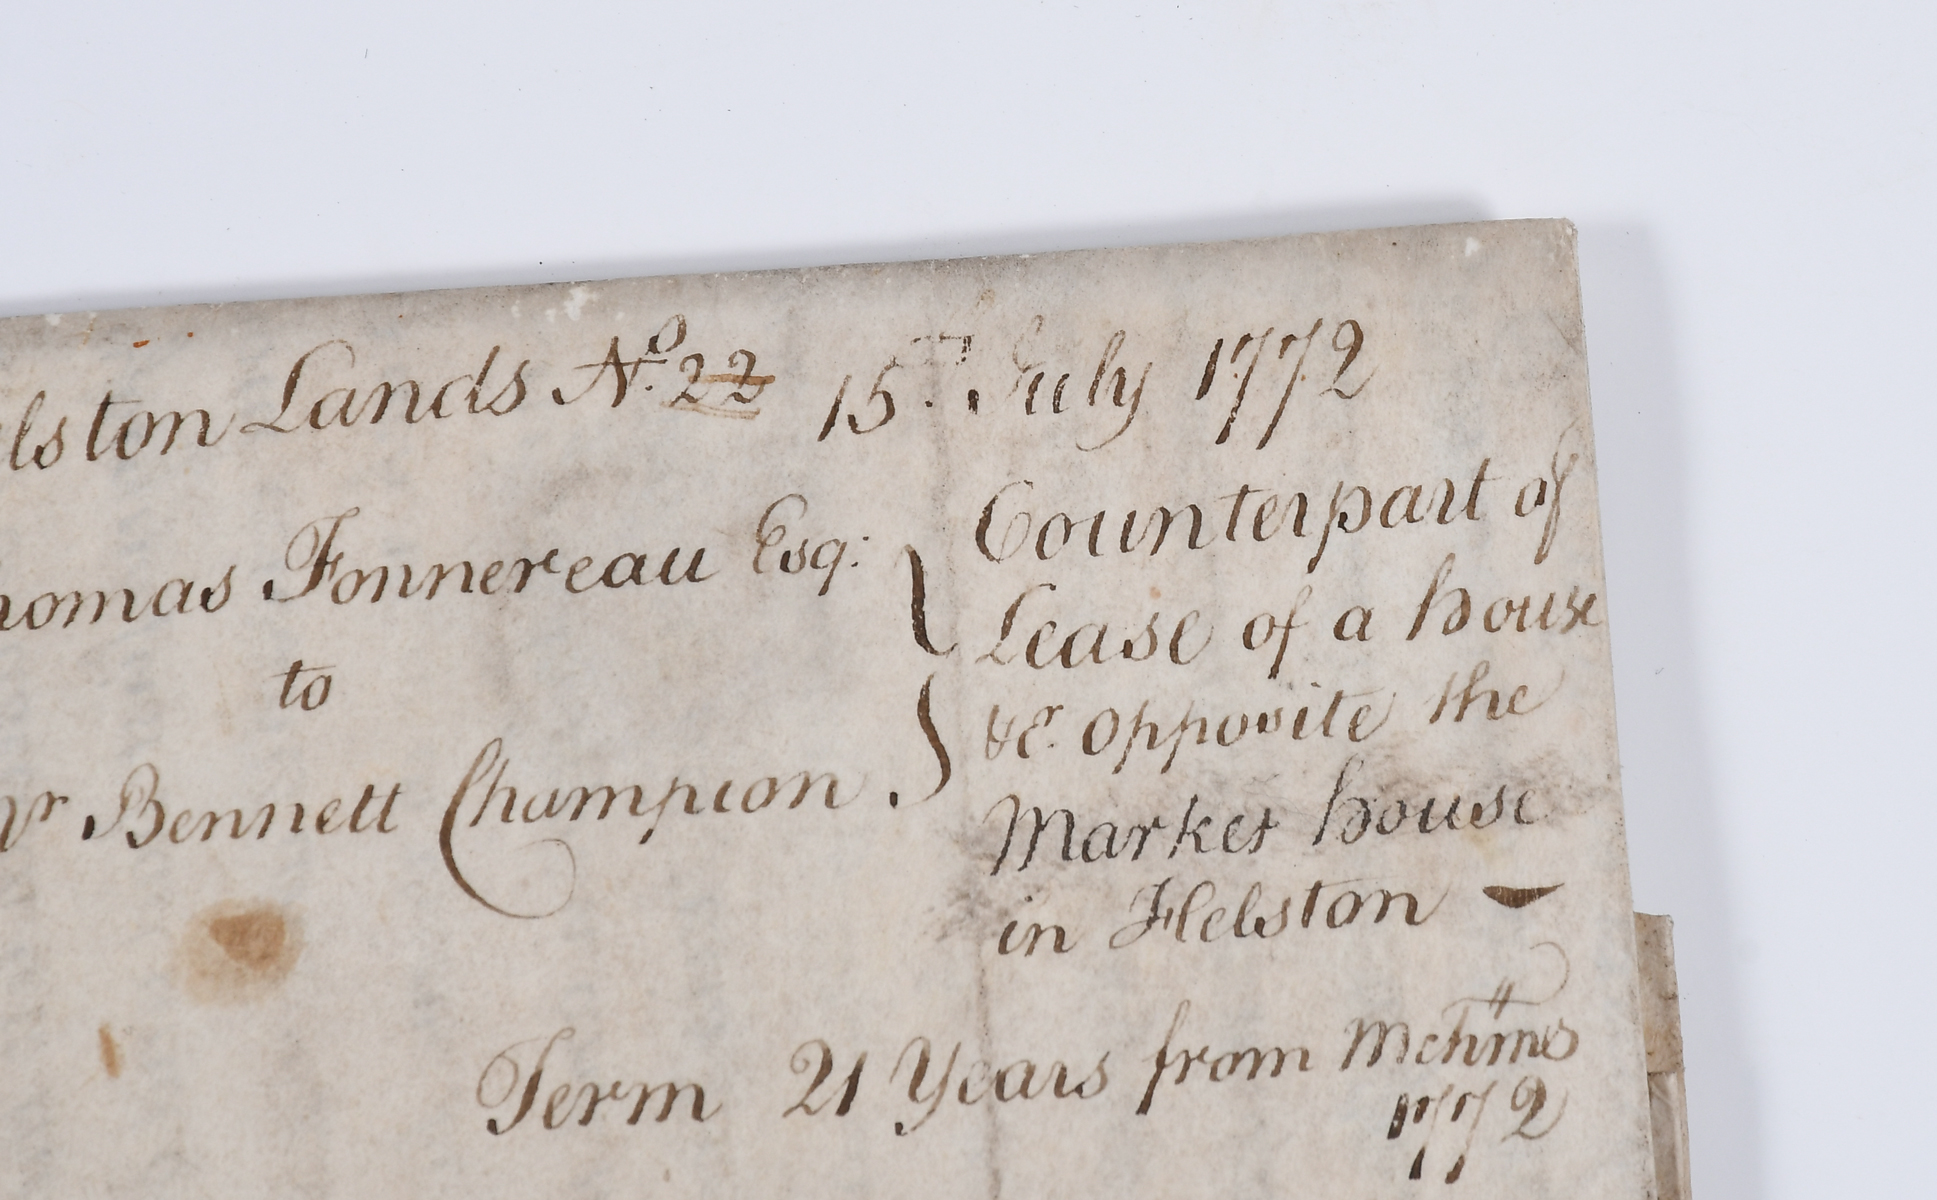 elston Lands No. 22 15th July 1772
homas Fonnereau Esq:
to
Mr Bennett Champion.
Counterpart of
Lease of a house
&c. opposite the
Market house
in Helston
Term 21 Years from Mchmes
1772